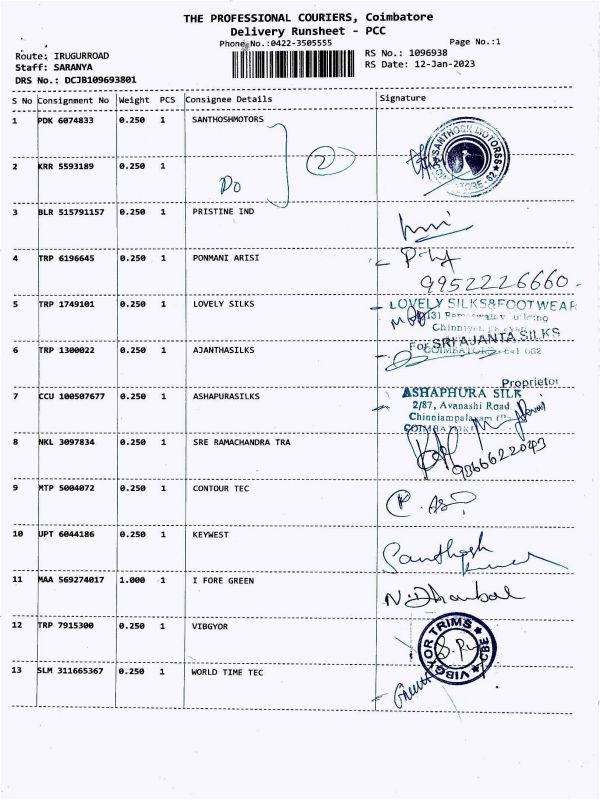 THE PROFESSIONAL COURIERS, Coimbatore
Delivery Runsheet - PCC
Phone No.:0422-3505555
Page No.:1
Route: IRUGURROAD
RS No.: 1096938
Staff: SARANYA
RS Date: 12-Jan-2023
DRS No.: DCJB109693801
S No Consignment No Weight PCS Consignee Details Signature
1 PDK 6074833 0.250 1 SANTHOSHMOTORS
SANTHOSH MOTORSS
2 KRR 5593189 0.250 1
Do
2
3 BLR 515791157 0.250 1 PRISTINE IND
4 TRP 6196645 0.250 1 PONMANI ARISI
9952226660
5 TRP 1749101 0.250 1 LOVELY SILKS
LOVELY SILKS&FOOTWEAR
6 TRP 1300022 0.250 1 AJANTHASILKS
For SRI AJANTA SILKS
Proprietor
7 CCU 100507677 0.250 1 ASHAPURASILKS
ASHAPHURA SILK
2/87, Avanashi Road
Chinniampalayam
8 NKL 3097834 0.250 1 SRE RAMACHANDRA TRA
9 MTP 5004072 0.250 1 CONTOUR TEC
10 UPT 6044186 0.250 1 KEYWEST
Santhosh
kumar
11 MAA 569274017 1.000 1 I FORE GREEN
N. Dhanbal
12 TRP 7915300 0.250 1 VIBGYOR
VIBGYOR TRIMS CBE
13 SLM 311665367 0.250 1 WORLD TIME TEC